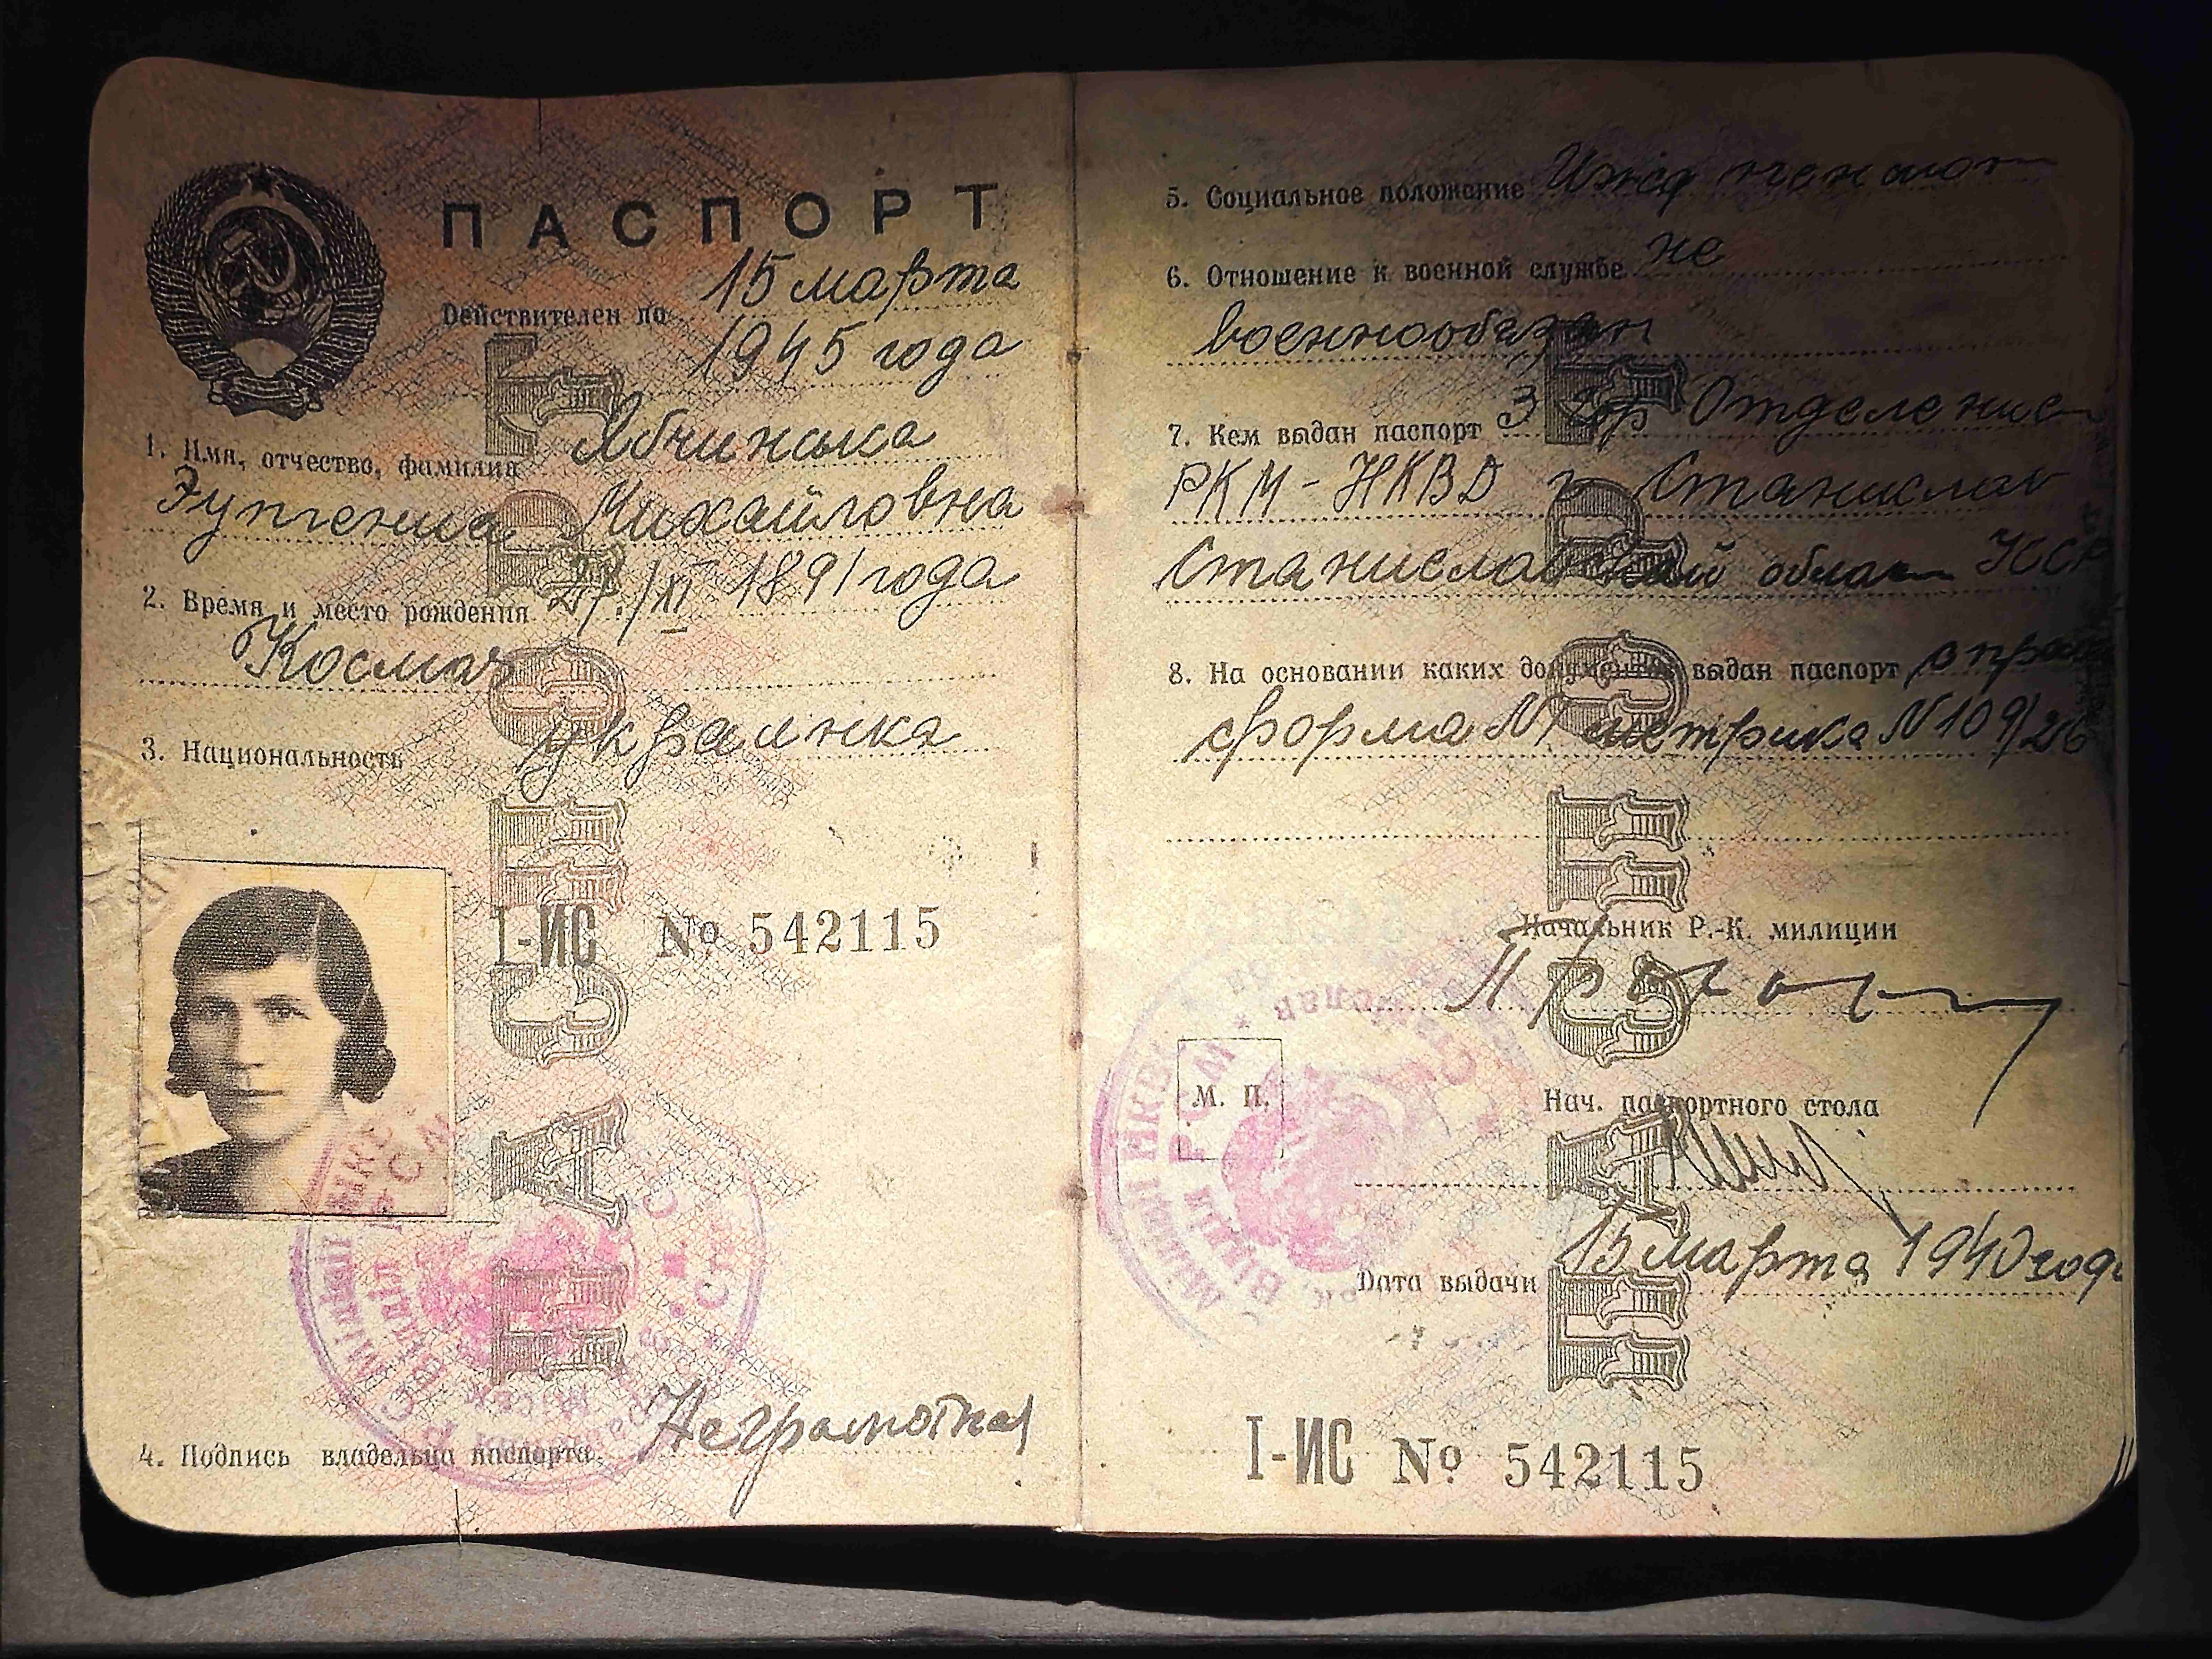 ПАСПОРТ
Действителен до 15 марта
1945 года
1. Имя, отчество, фамилия Ябчинська
Эугения Михайловна
2. Время и место рождения 27./XI 1891 года
Космач
3. Национальность украинка
I-ИС № 542115
4. Подпись владельца паспорта Неграмотная
5. Социальное положение
6. Отношение к военной службе не
военнообязан
7. Кем выдан паспорт 3 Отделение
РКМ-НКВД г. Станислав
Станиславской УССР
8. На основании каких документов выдан паспорт
форма №1 метрика №109/
Начальник Р.-К. милиции
М. П.
Нач. паспортного стола
Дата выдачи 15 марта 1940 года
I-ИС № 542115
ПАСПОРТ
ПАСПОРТ